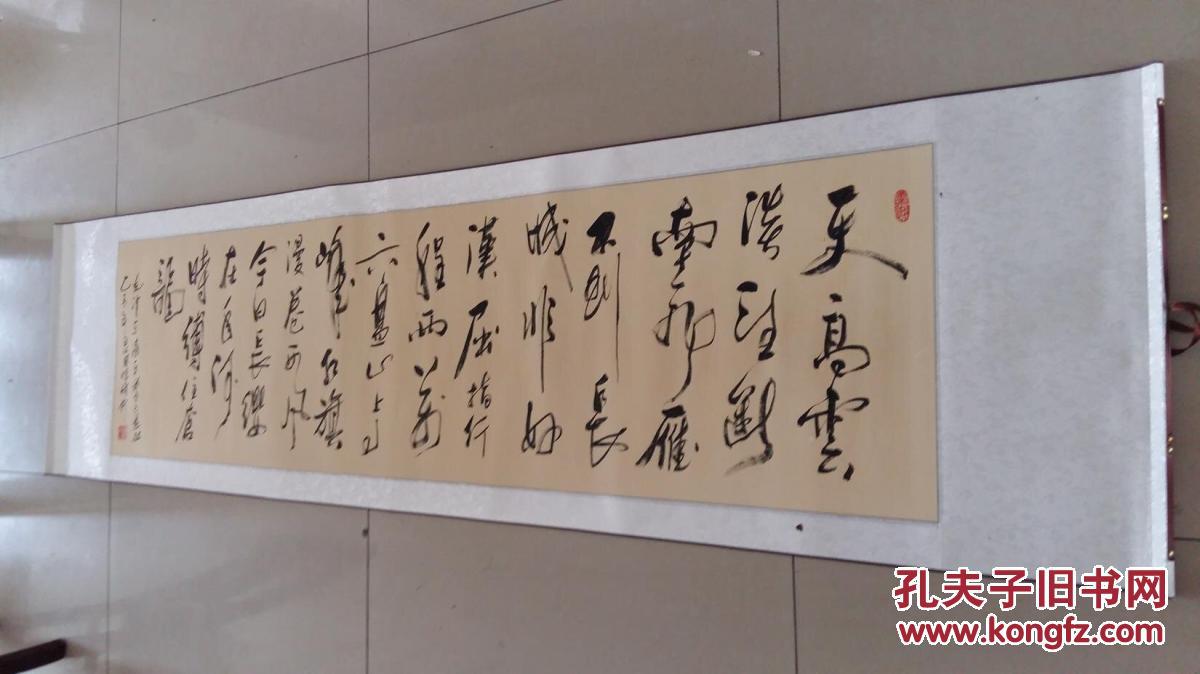 天高雲
淡望斷
南飛雁
不到長
城非好
漢屈指行
程兩萬
六盤山上高
峰紅旗
漫卷西風
今日長纓
在手何
時縛住蒼
龍
孔夫子旧书网
www.kongfz.com